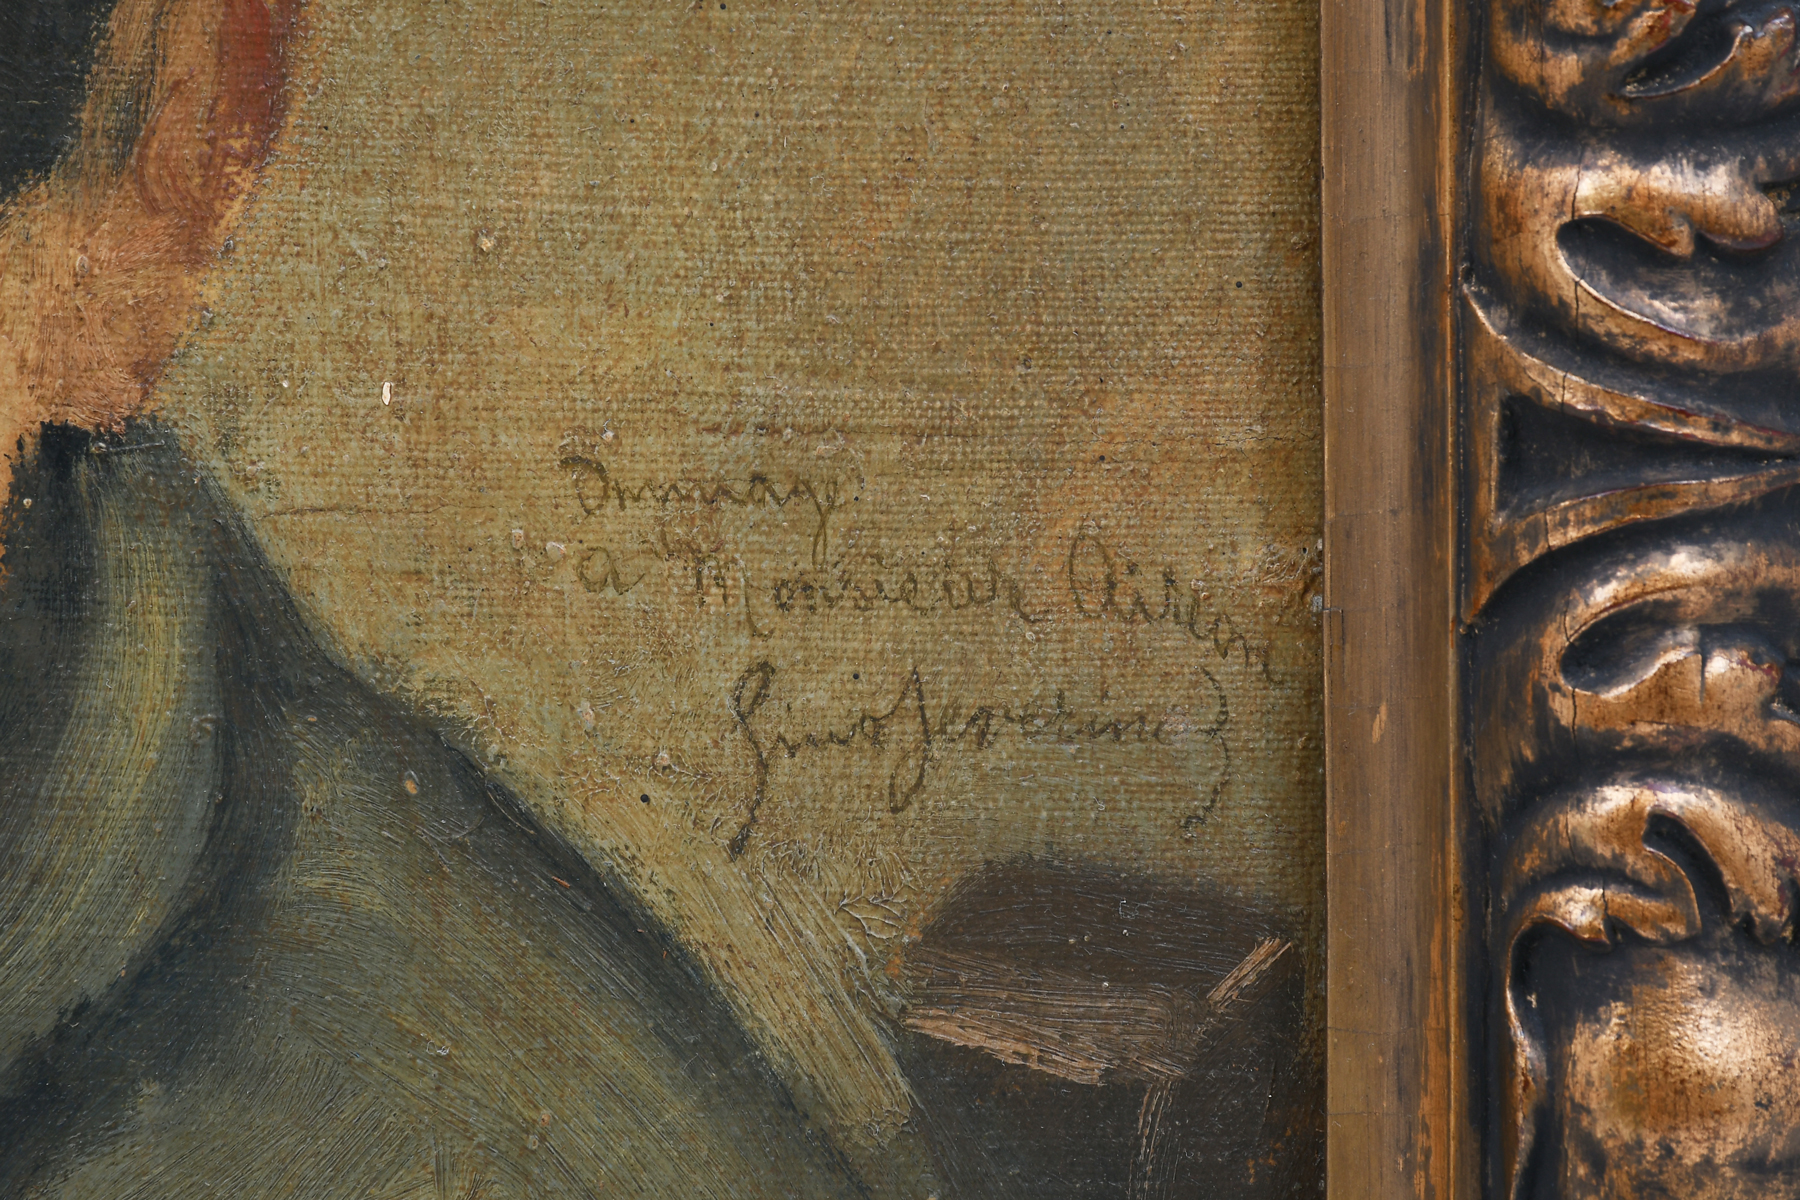 Ommage
a Monsieur Airlon
Gino Severini